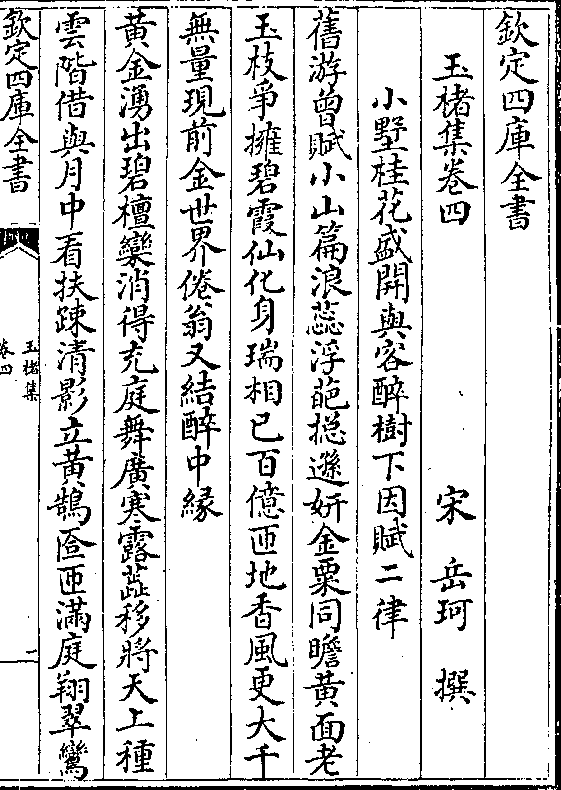 欽定四庫全書
玉楮集卷四
宋 岳珂 撰
小墅桂花盛開與客醉樹下因賦二律
舊游曾賦小山篇浪蕊浮葩摠遜妍金粟同瞻黄面老
玉枝爭擁碧霞仙化身瑞相已百億匝地香風更大千
無量現前金世界倦翁又結醉中緣
黄金湧出碧檀欒消得充庭舞廣寒露蕋移將天上種
雲階借與月中看扶踈清影立黄鵠匼匝滿庭翔翠鸞
欽定四庫全書
玉楮集
卷四
一